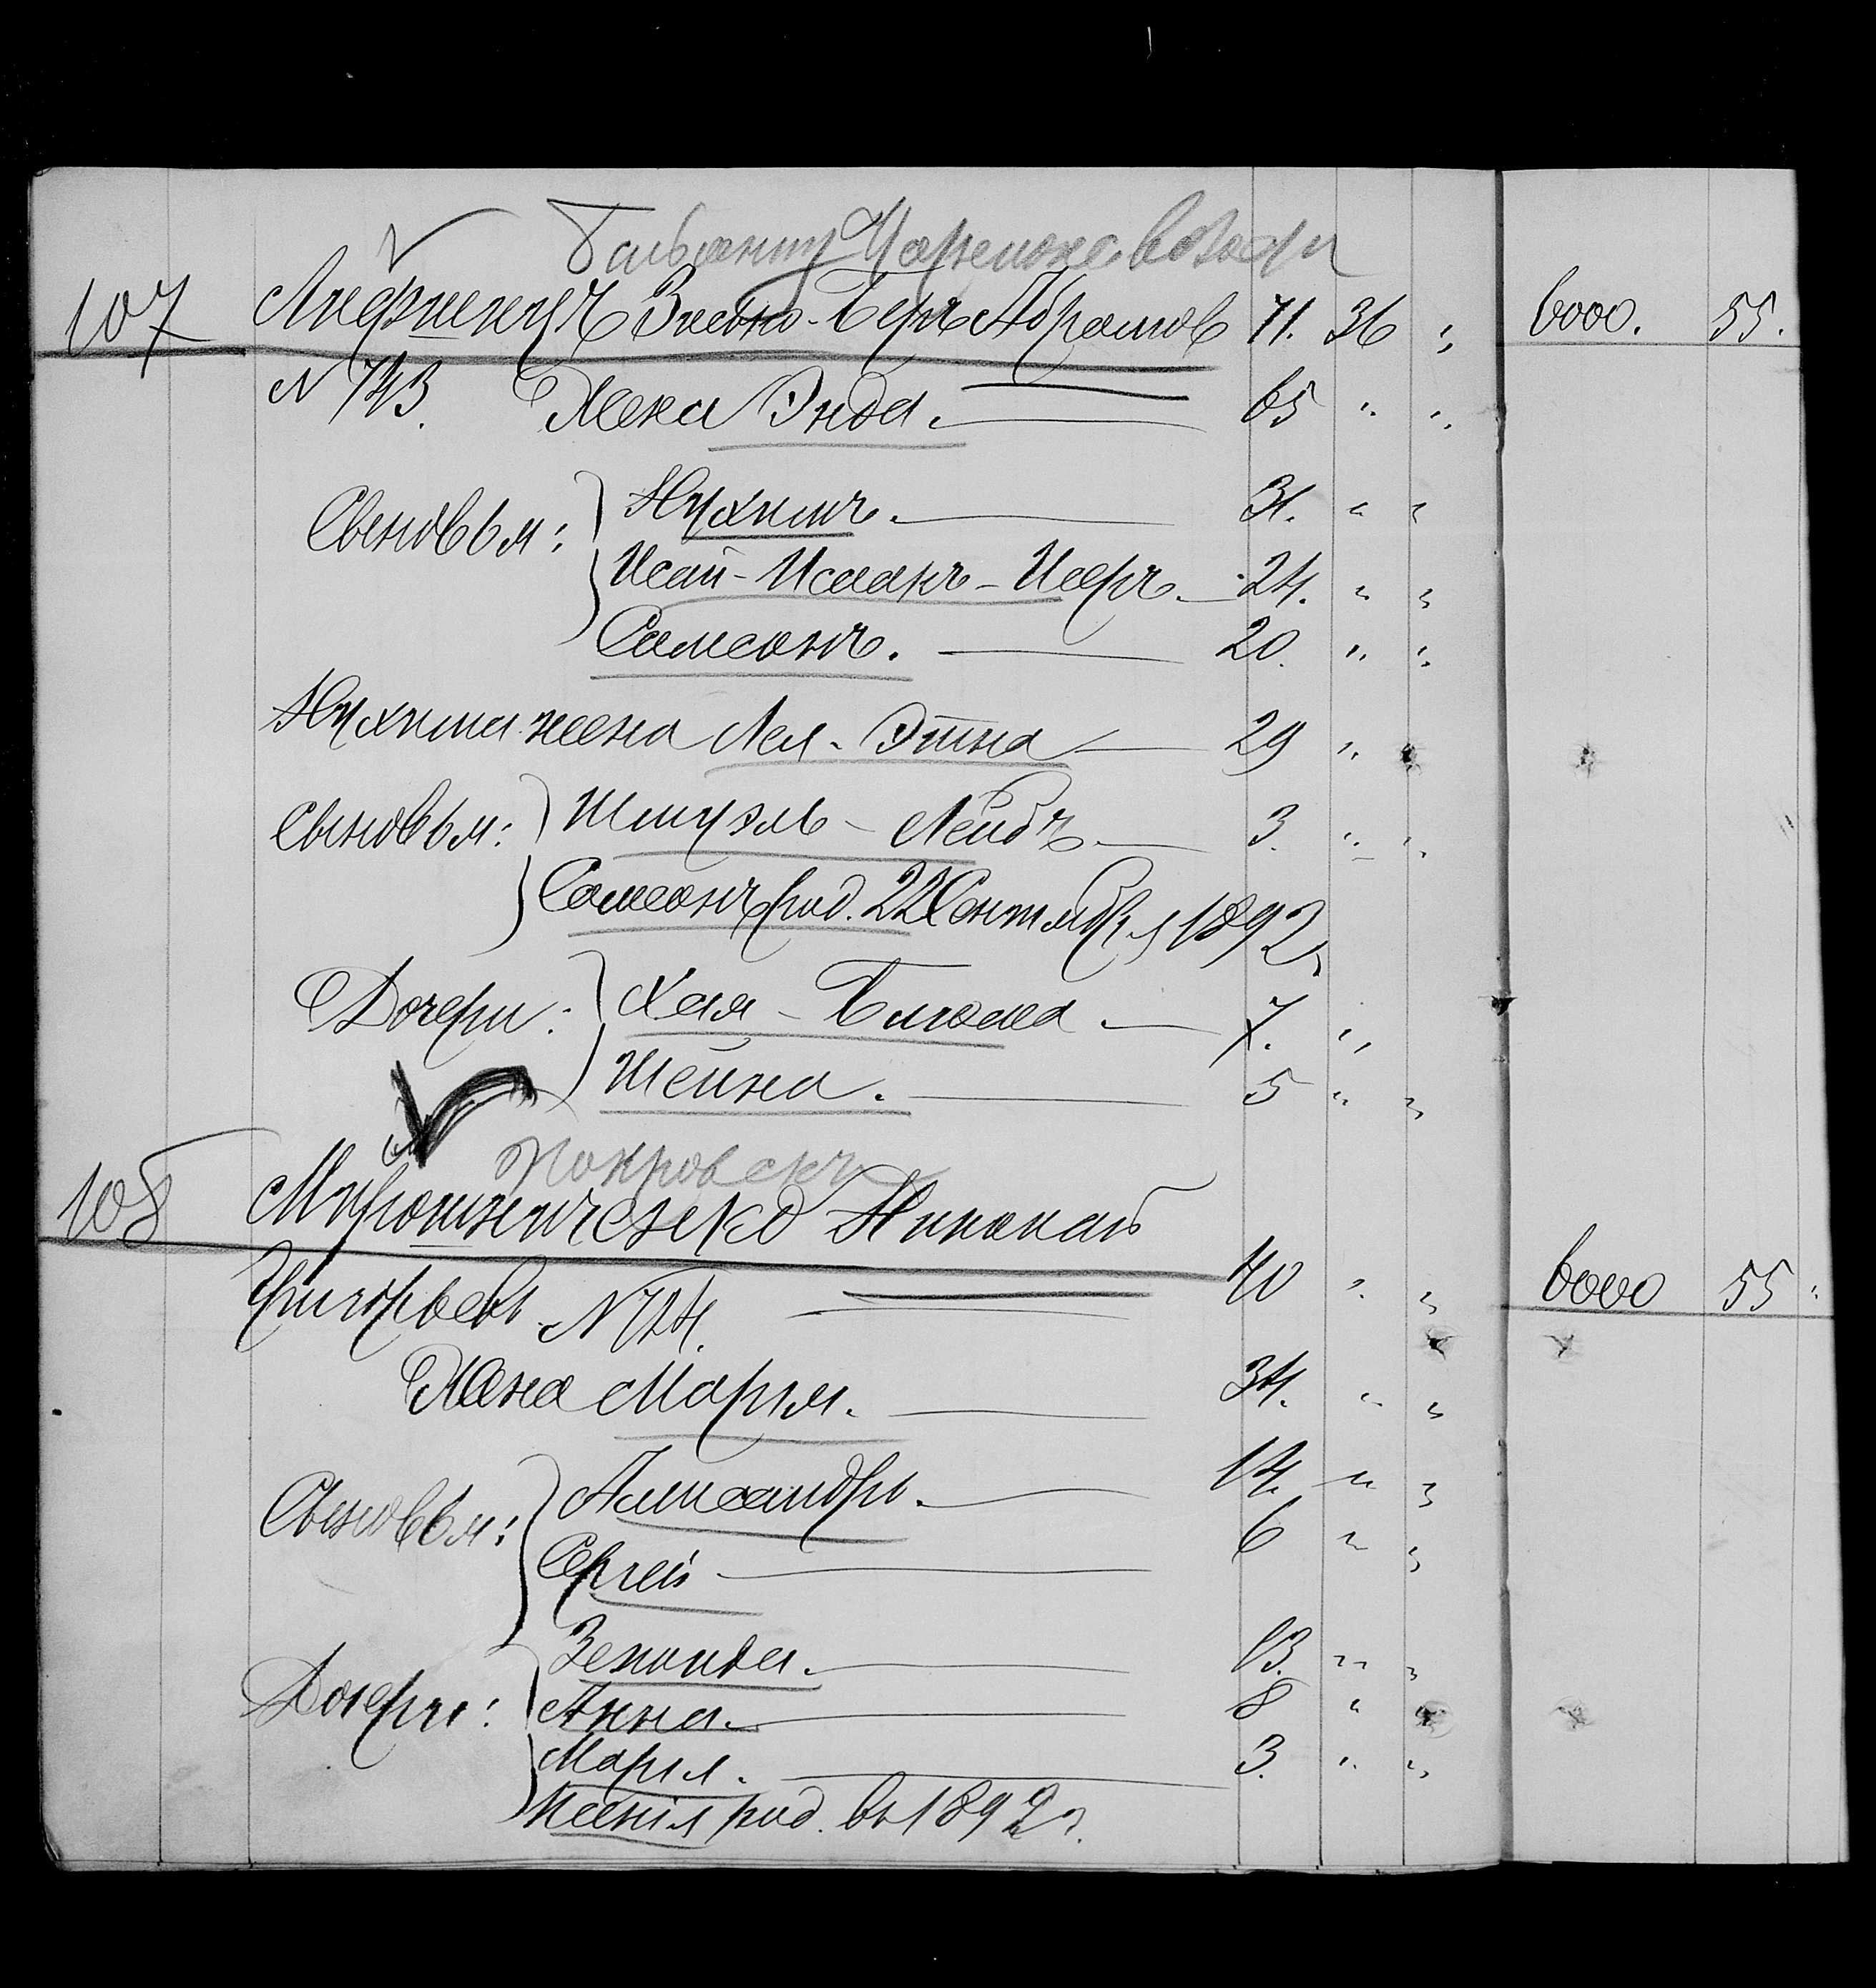 107 Зисько-Беръ Абрамов 71. 36 " 6000. 55.
N 743. Жена Энда. 65 " "
Сыновья: Нухимъ. 31. " "
Исай-Исаакъ-Исеръ. 24. " "
Самсонъ. 20. " "
Нухима жена Лея-Этна 29 "
Сыновья: Шмуэль-Лейбъ 3. " "
Самсонъ род. 22 Сентября 1892 г.
Дочери: Хая- 7. "
Шейна. 5 " "
Покровскъ
108 Мирошниченко Николай
Григорьевъ N 724. 40 " " 6000 55 "
Жена Мария. 34. " "
Сыновья: Александръ. 14. " "
Сергей 6 " "
Дочери: Зенаида. 13. " "
Анна. 8 "
Мария. 3. " "
Ксенія род. въ 1892 г.